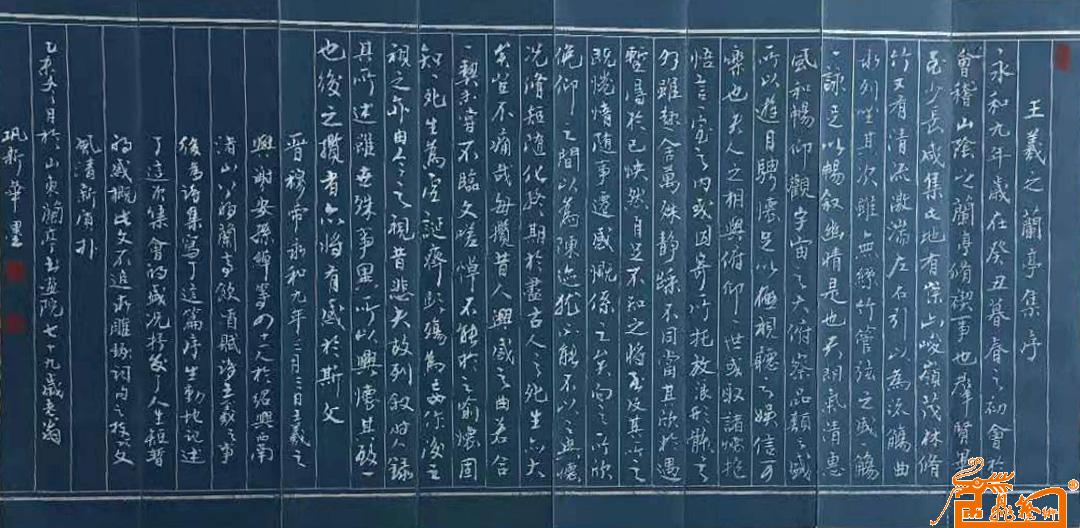 王羲之蘭亭集序
永和九年歲在癸丑暮春之初會於
會稽山陰之蘭亭脩禊事也群賢畢
至少長咸集此地有崇山峻嶺茂林脩
竹又有清流激湍左右引以為流觴曲
水列坐其次雖無絲竹管弦之盛一觴
一詠足以暢叙幽情是也天朗氣清惠
風和暢仰觀宇宙之大俯察品類之盛
所以遊目騁懷足以極視聽之娛信可
樂也夫人之相與俯仰一世或取諸懷抱
悟言一室之內或因寄所托放浪形骸之
外雖趣舍萬殊靜躁不同當其欣於遇
暫得於己快然自足不知之將至及其所之
既惓情隨事遷感慨係之矣向之所欣
俛仰之間以為陳迹猶不能不以之興懷
況脩短隨化終期於盡古人云死生亦大
矣豈不痛哉每攬昔人興感之由若合
一契未嘗不臨文嗟悼不能喻之於懷固
知一死生為虛誕齊彭殤為妄作後之
視今亦由今之視昔悲夫故列叙時人錄
其所述雖世殊事異所以興懷其致一
也後之攬者亦將有感於斯文
晉穆帝永和九年三月三日王羲之
與謝安孫綽等四十一人於紹興西南
渚山以的蘭亭飲酒賦詩王羲之事
後為詩集寫了這篇序生動地記述
了這次集會的盛況抒發了人生短暫
的感概此文不追求雕詞句之技文
風清新質朴
乙未冬月於山東蘭亭書畫院七十九歲老翁
鞏新華書